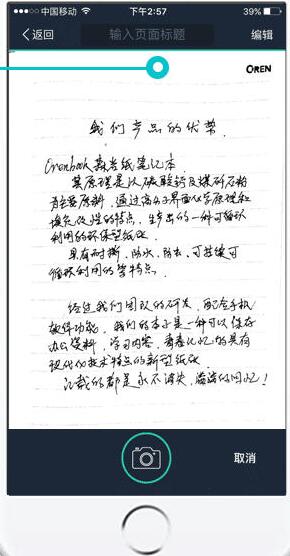 中国移动 下午2:57 39%
返回 输入页面标题 编辑
OREN
我们产品的优势
Orenbook 森岩纸笔记本
其原理是以碳酸钙及煤矸石粉
为主要原料，通过高分子界面化学原理和
填充改性的特点，生产出的一种可循环
利用的环保型纸张
具有耐撕，防水，防虫，可持续可
循环利用的等特点。
经过我们团队的研发，配合手机
软件功能，我们的本子是一种可以保存
办公资料，学习内容，青春记忆的具有
现代化技术特点的新型纸张
记载的都是永不消失，溢满的回忆！
取消